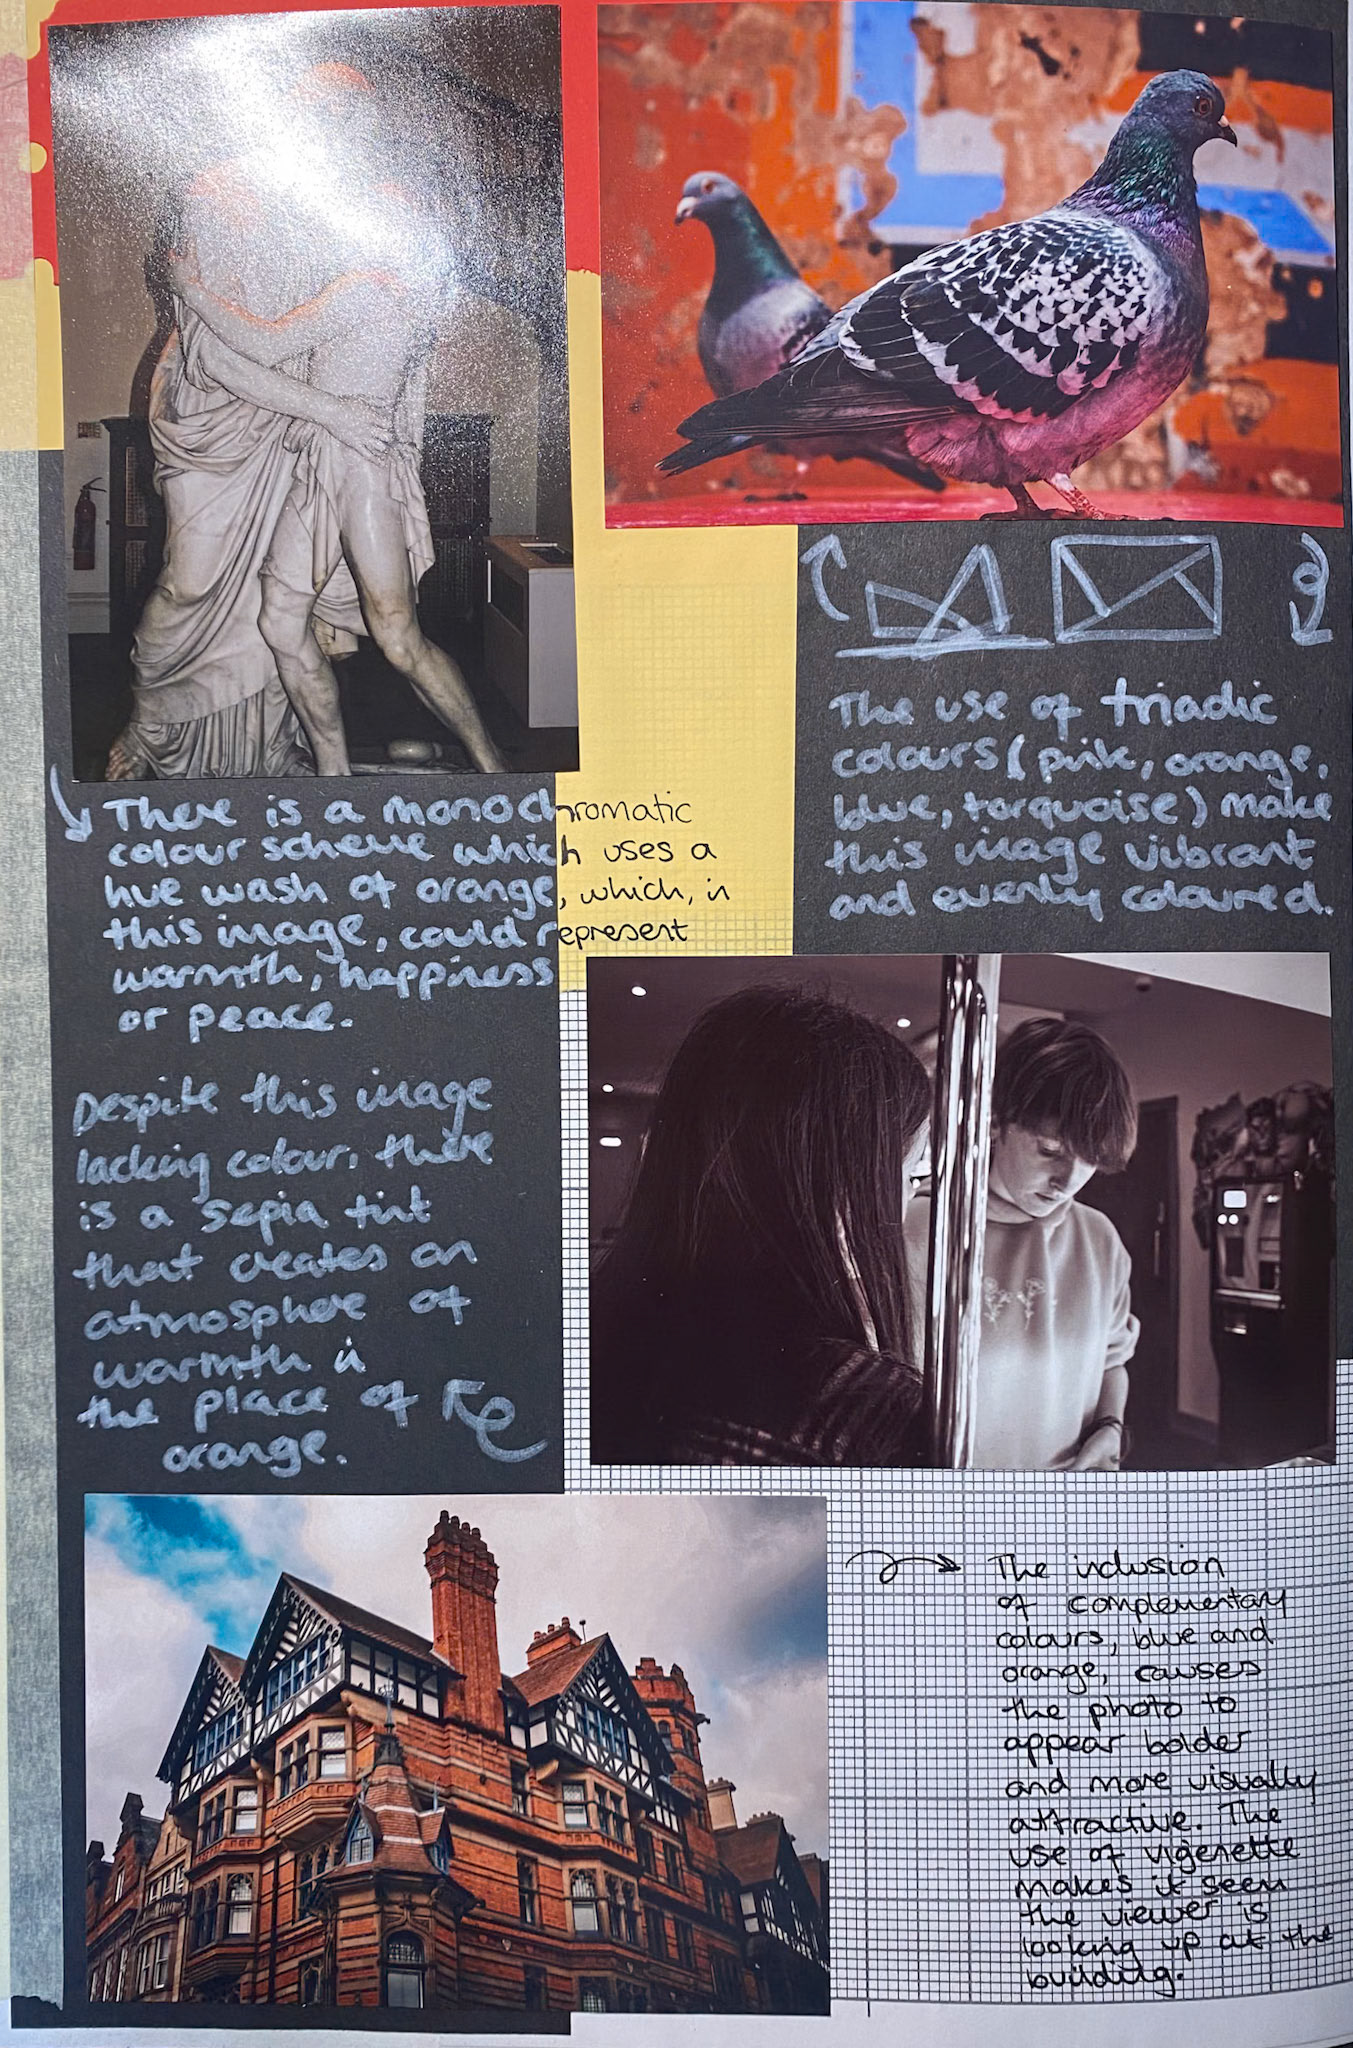 There is a monochromatic
colour scheme which uses a
hue wash of orange, which, in
this image, could represent
warmth, happiness
or peace.
Despite this image
lacking colour, there
is a sepia tint
that creates an
atmosphere of
warmth in
the place of
orange.
The use of triadic
colours (pink, orange,
blue, torquoise) make
this image vibrant
and evenly coloured.
The inclusion
of complementary
colours, blue and
orange, causes
the photo to
appear bolder
and more visually
attractive. The
use of vigenette
makes it seem
the viewer is
looking up at the
building.